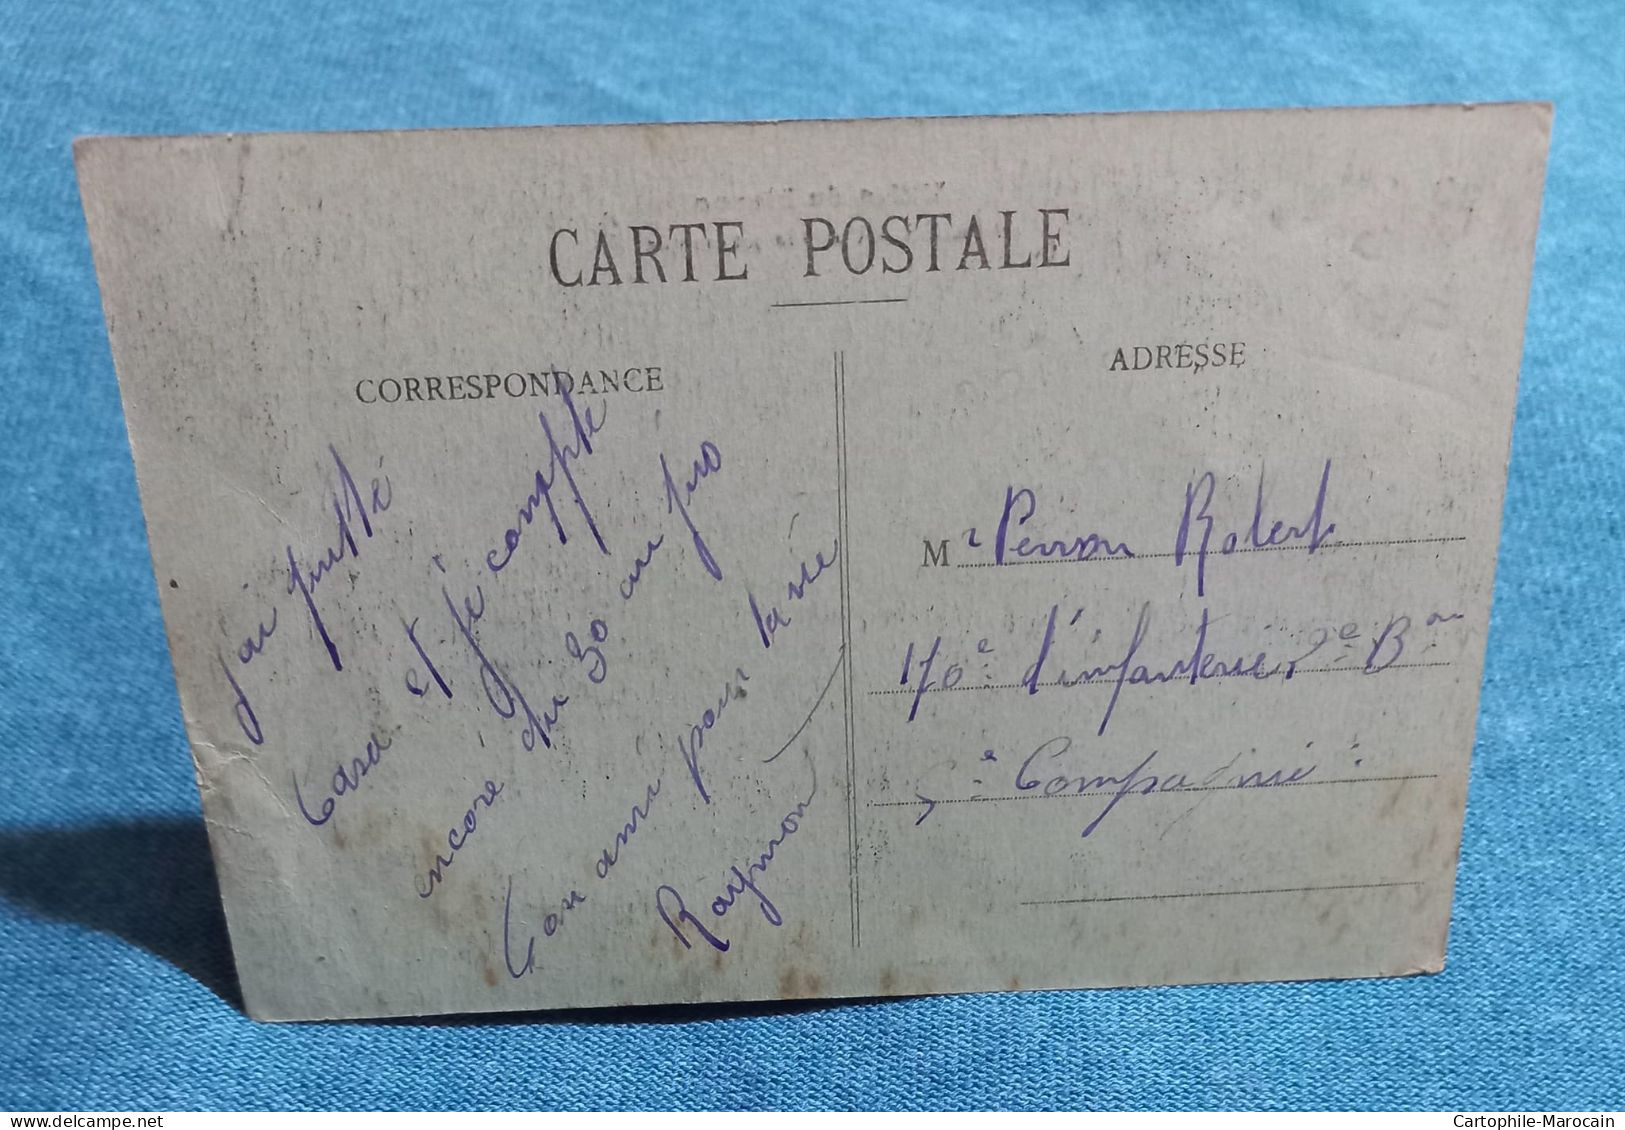 CARTE POSTALE
CORRESPONDANCE
J'ai quitté
Casa et je compte
encore du 30 au jus
Ton ami pour la vie
Raymond
ADRESSE
Mr Perron Robert
170e d'infanterie. 2e Bon
5e Compagnie
delcampe.net
Cartophile-Marocain